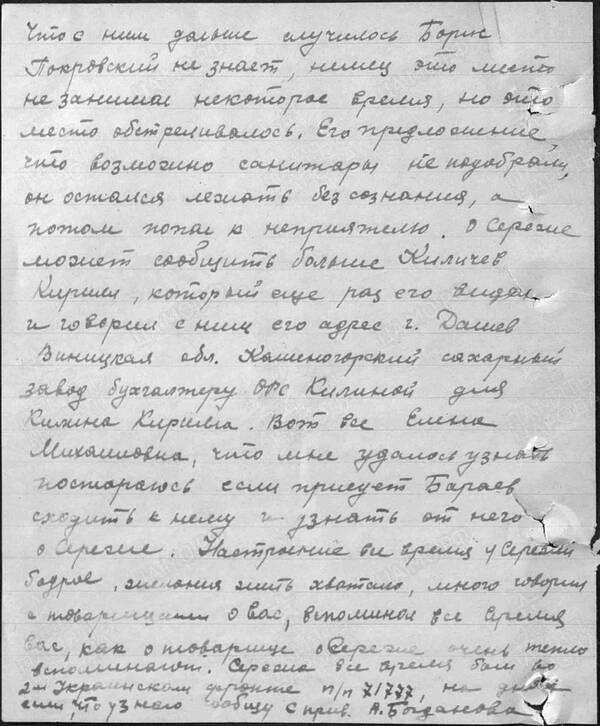 Что с ним дальше случилось Борис
Покровский не знает, немец это место
не занимал некоторое время, но это
место обстреливалось. Его предложение,
что возможно санитары не подобрали,
он остался лежать без сознания, а
потом попал к неприятелю. О Сереже
может сообщить больше Киличев
Кирилл, который еще раз его видел
и говорил с ним его адрес г. Дашев
Виницкая обл. Кашногорский сахарный
завод бухгалтеру ОРС Килиной для
Килина Кирилла. Вот все Елена
Михайловна, что мне удалось узнать
постараюсь если приедет Бараев
сходить к нему и узнать от него
о Сереже. Настроение все время у Сережи
бодрое, желания жить хватало, много говорил
с товарищами о вас, вспоминал все время
вас, как о товарище о Сереже очень тепло
вспоминают. Сережа все время был во
2-м Украинском фронте п/п 71777, на днях
если, что узнаю сообщу с прив. А. Богданова